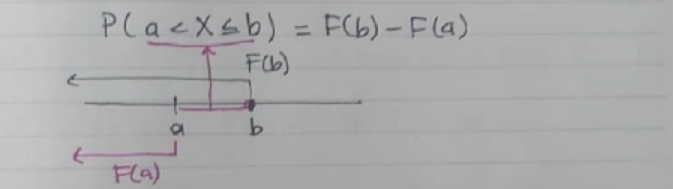 P(a < X ≤ b) = F(b) - F(a)
F(b)
a b
F(a)